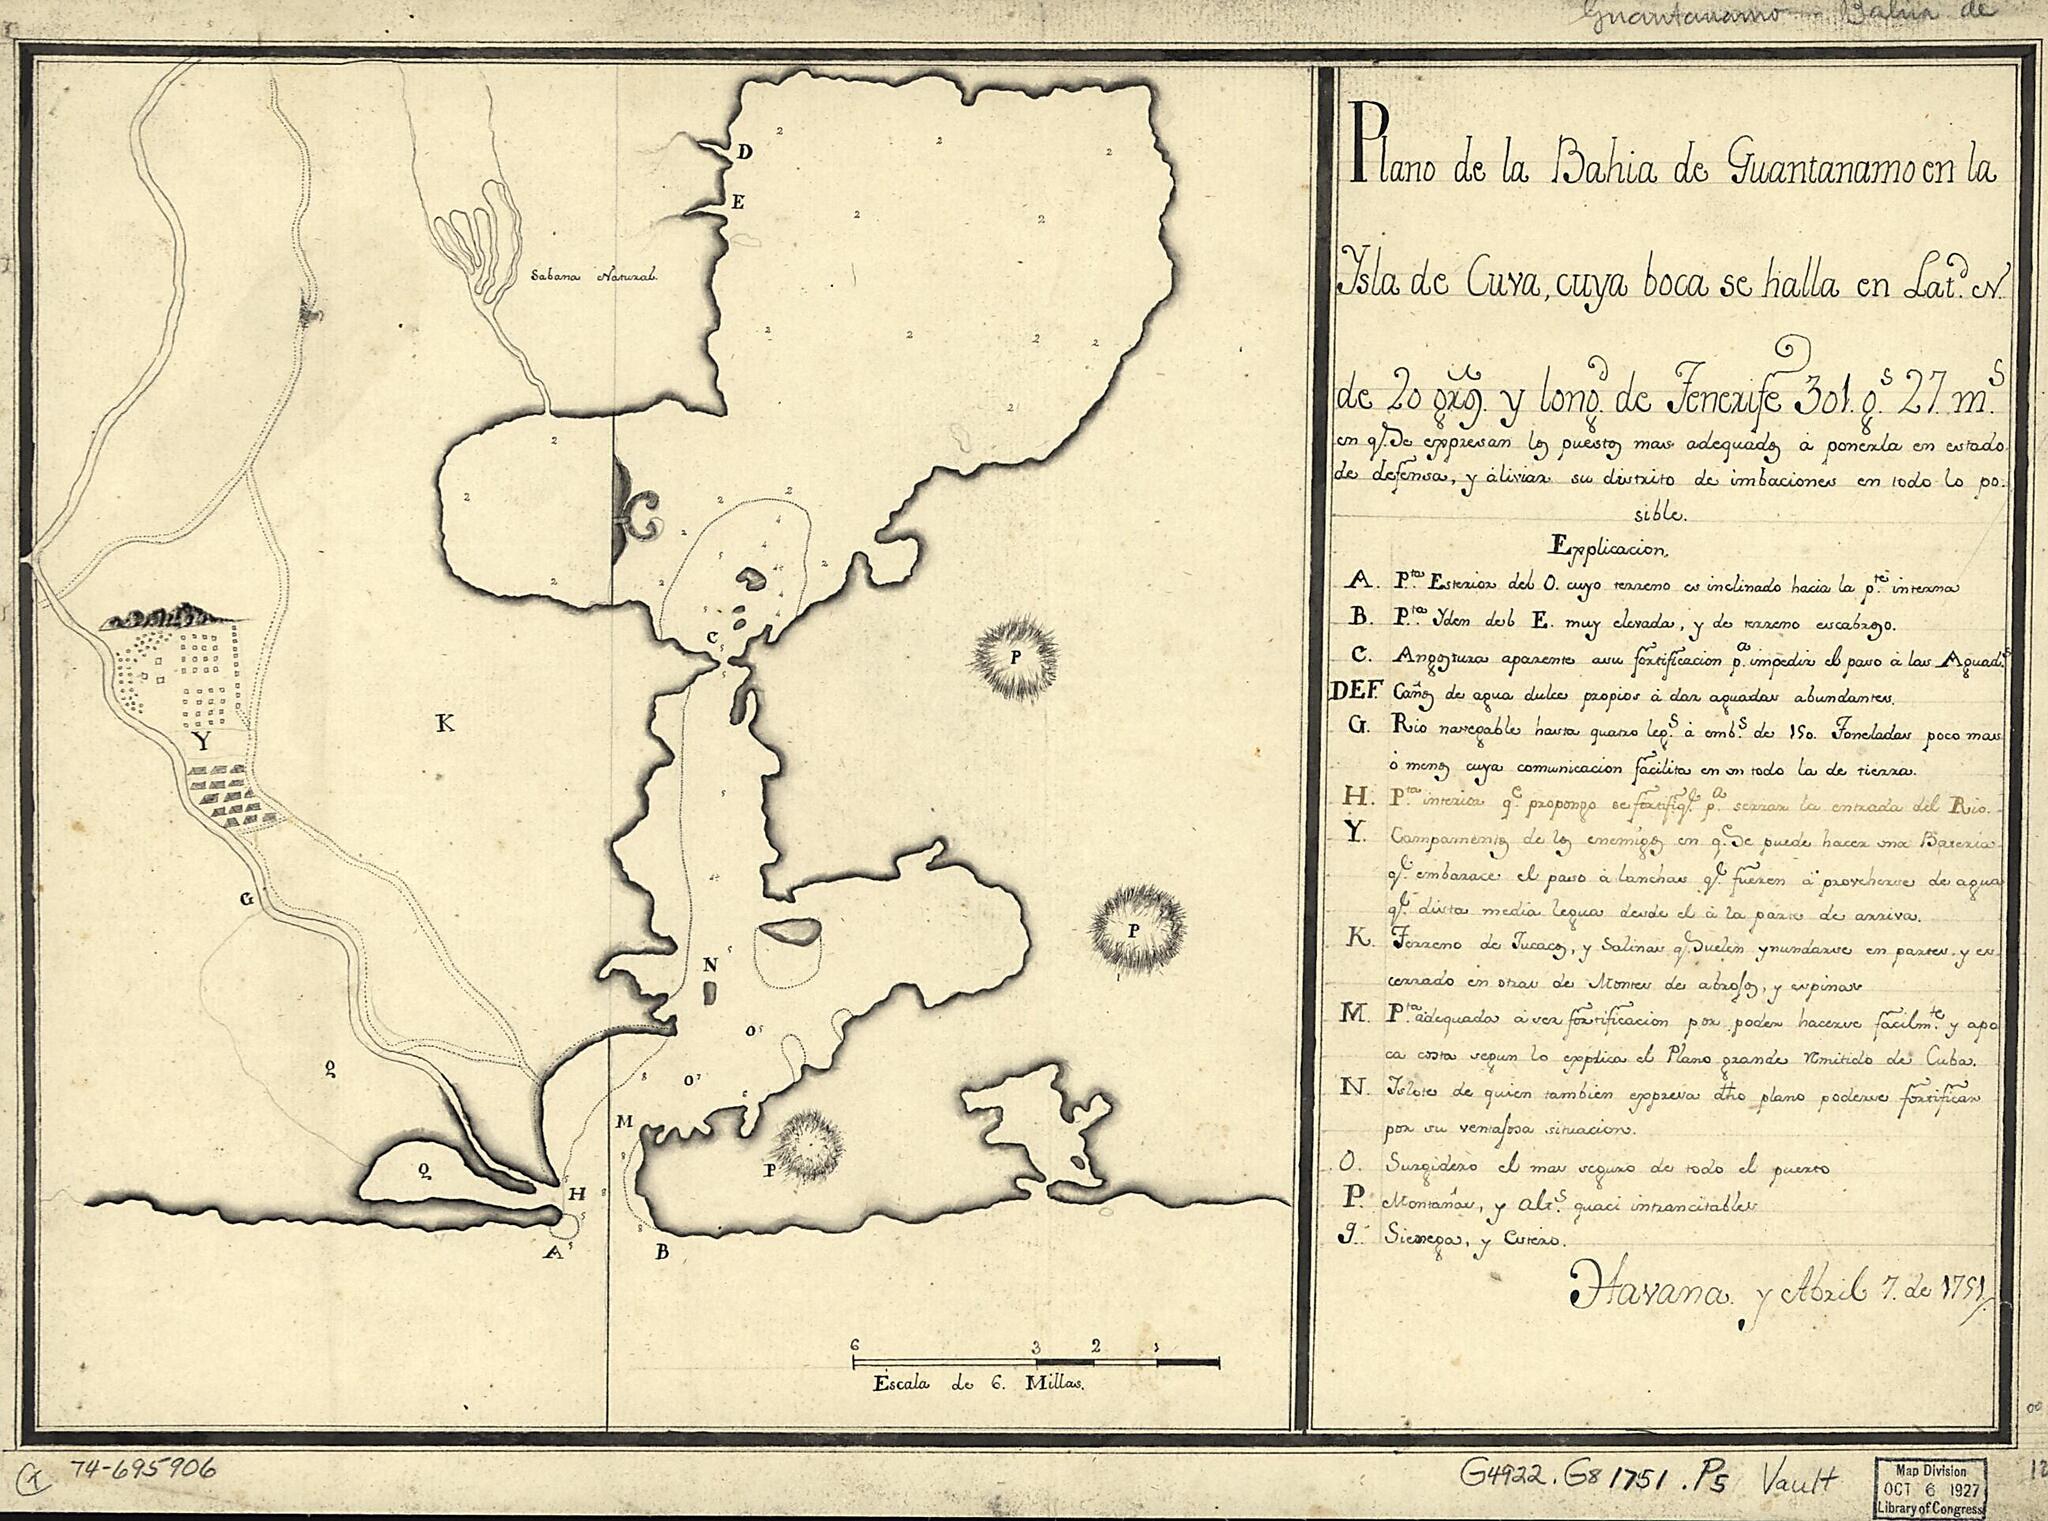 Guantanamo - Bahia de
Plano de la Bahia de Guantanamo en la
Ysla de Cuva, cuya boca se halla en Lat.d N.
de 20 grs. y long.d de Tenerife 301. g.s 27. m.s
en q.e Se expresan los puestos mas adequados á ponerla en estado
de defensa, y áliviar su distrito de imbaciones en todo lo po-
sible.
Explicacion.
A. P.ta Esterior del O. cuyo terreno es inclinado hacia la p.te interna
B. P.ta Yden del E. muy elevada, y de terreno escabroso.
C. Angostura aparente asu fortificacion p.a impedir el paso á las Aguad.s
DEF Caños de agua dulce propios á dar aguadas abundantes.
G. Rio navegable hasta quatro leg.s á emb.s de 150. Toneladas poco mas
ó menos cuya comunicacion facilita en un todo la de tierra.
H. P.ta interior q.e propongo se fortifiq.e p.a serrar la entrada del Rio.
Y. Campamentos de los enemigos en q.e Se puede hacer una Bateria
q.e embarace el paso á lanchas q.e fueren á proveherse de agua
q.e dista media legua desde el á la parte de arriva.
K. Terreno de Tucacos, y Salinas q.e Suelen ynundarse en partes y es
cerrado en otras de Montes de abrosos, y espinas
M. P.ta adequada á ser fortificacion por poder hacerse facilm.te y apo
ca costa segun lo explica el Plano grande remitido de Cuba.
N. Islote de quien tambien expresa dho plano poderse fortificar
por su ventajosa situacion.
O. Surgidero el mas seguro de todo el puerto
P. Montañas, y Alt.s quaci intrancitables
g. Sienega, y Estero.
Havana y Abril 7. de 1751
D
E
Sabana Natural
2 2 2
2 2
2 2 2 2
2
2
2 2
2 2
2 2 2
4
5
4
4
5
C
P
K
Y
5
G
5
N
P
O 5
Q
8 O 7
5
M
8
P
Q
H
8
5
5
8
A
B
6 3 2 1
Escala de 6. Millas.
74-695906
G4922.G8 1751 .P5 Vault
Map Division
OCT 6 1927
Library of Congress